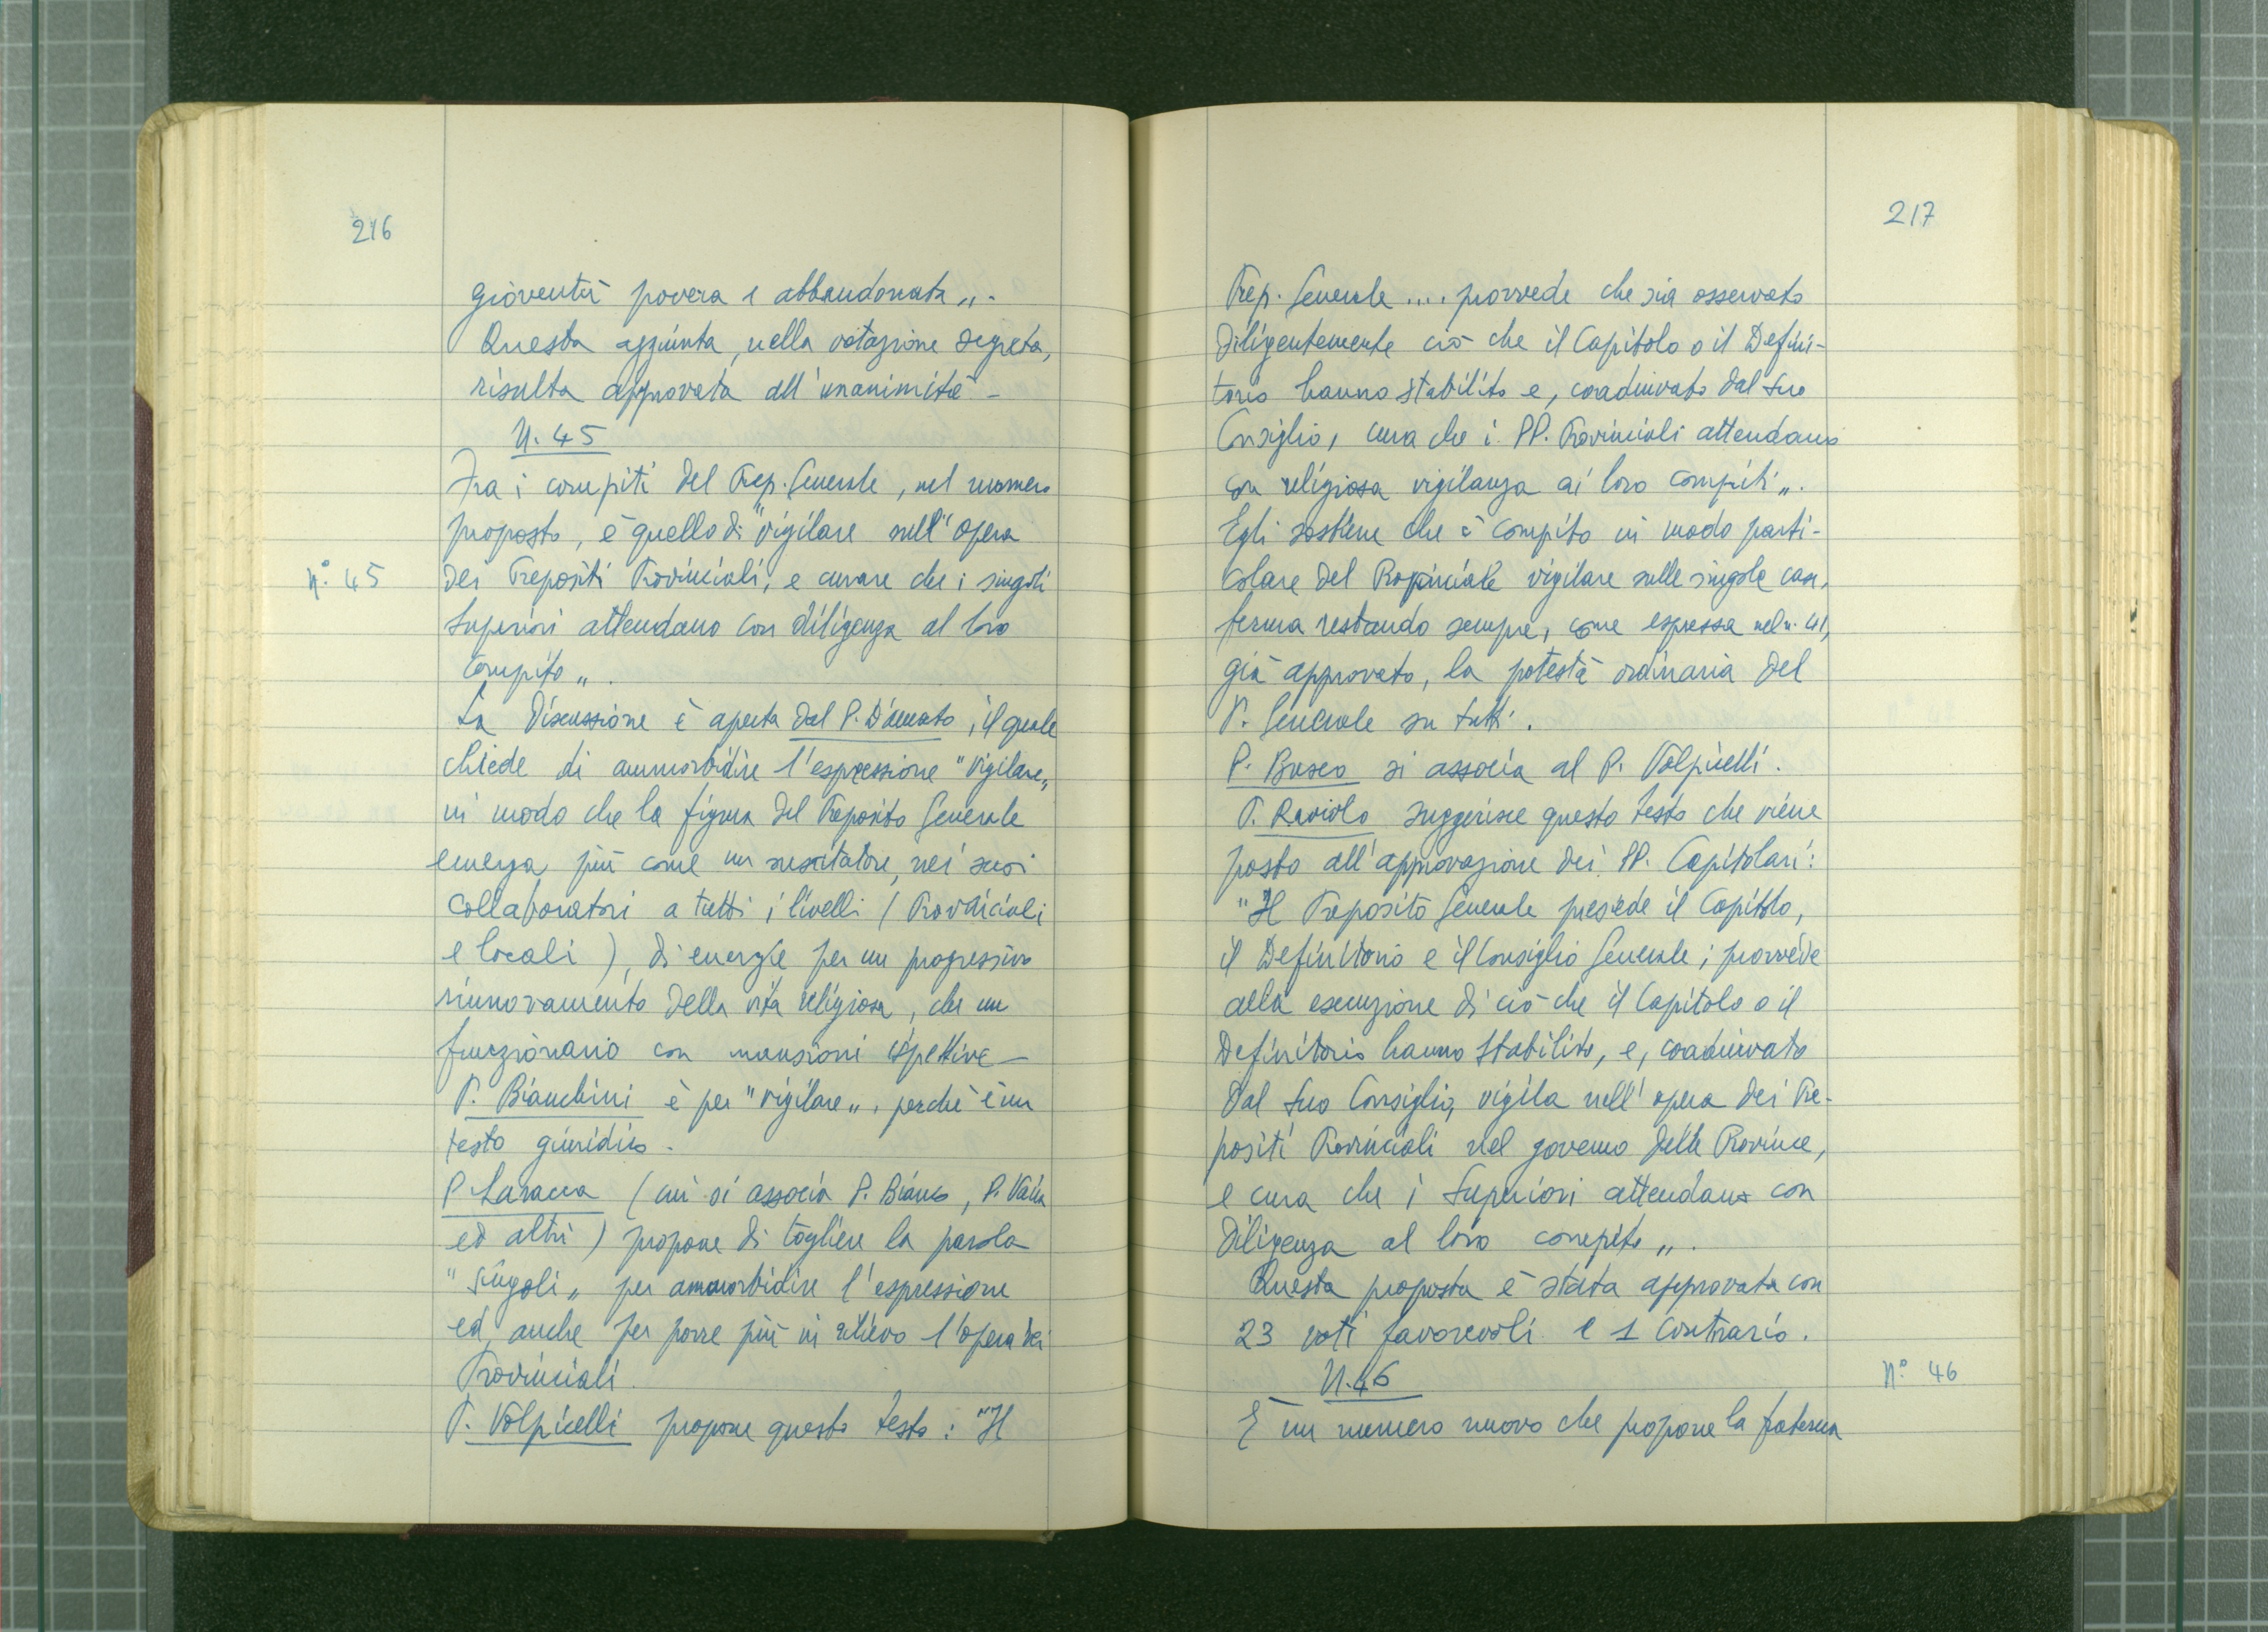 216
gioventù povera e abbandonata„.
Questa aggiunta, nella votazione segreta,
risulta approvata all'unanimità –
N. 45
Fra i compiti del Prep. Generale, nel numero
proposto, è quello di "vigilare nell'opera
N.° 45
dei Prepositi Provinciali, e curare che i singoli
Superiori attendano con diligenza al loro
compito„.
La discussione è aperta dal P. D'Amato, il quale
chiede di ammorbidire l'espressione "vigilare„
in modo che la figura del Preposito Generale
emerga più come un suscitatore, nei suoi
collaboratori a tutti i livelli (Provinciali
e locali), di energie per un progressivo
rinnovamento della vita religiosa, che un
funzionario con mansioni ispettive –
P. Bianchini è per "vigilare„, perchè è un
testo giuridico –
P. Laracca (cui si associa P. Bianco, P. Vaira
ed altri) propone di togliere la parola
"singoli„ per ammorbidire l'espressione
ed anche per porre più in rilievo l'opera dei
Provinciali.
P. Volpicelli propone questo testo: "Il
217
Prep. Generale .... provvede che sia osservato
diligentemente ciò che il Capitolo o il Defini-
torio hanno stabilito e, coadiuvato dal suo
Consiglio, cura che i PP. Provinciali attendano
con religiosa vigilanza ai loro compiti„.
Egli sostiene che è compito in modo parti-
colare del Provinciale vigilare sulle singole case,
ferma restando sempre, come espressa nel n. 41,
già approvato, la potestà ordinaria del
P. Generale su tutti.
P. Busco si associa al P. Volpicelli.
P. Raviolo suggerisce questo testo che viene
posto all'approvazione dei PP. Capitolari:
"Il Preposito Generale presiede il Capitolo,
il Definitorio e il Consiglio Generale; provvede
alla esecuzione di ciò che il Capitolo o il
Definitorio hanno stabilito, e, coadiuvato
dal suo Consiglio, vigila nell'opera dei Pre-
positi Provinciali nel governo delle Province,
e cura che i Superiori attendano con
diligenza al loro compito„.
Questa proposta è stata approvata con
23 voti favorevoli e 1 contrario.
N. 46
N.° 46
È un numero nuovo che propone la fraterna